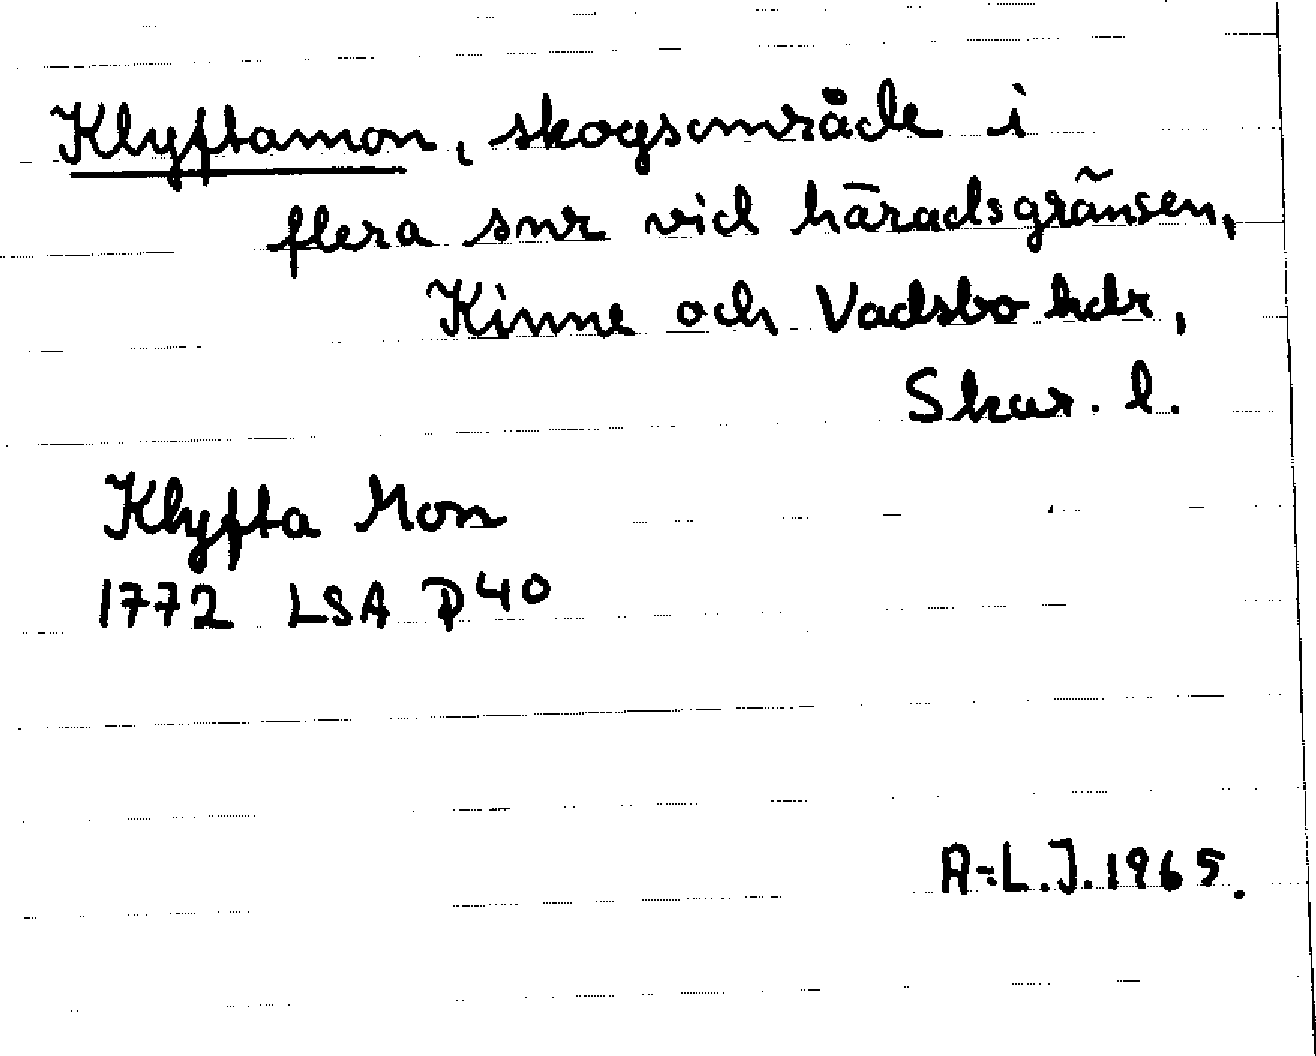 Klyftamon, skogsområde i
flera snr vid häradsgränsen,
Kinne och Vadsbo hdr,
Skar. l.
Klyfta Mon
1772 LSA P 40
A-L.J. 1965.